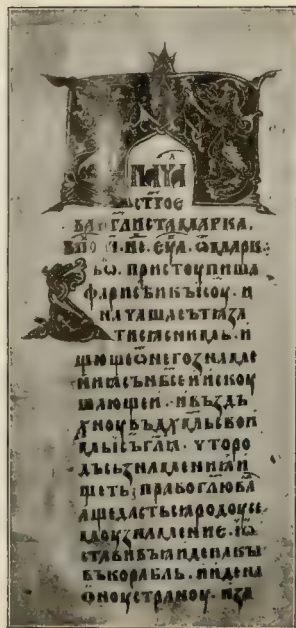 НАЧАЛ
СТГОЕ
ЕВАГЛИСТА МАРКА.
ЕУА. Ѿ МАРК:
ПРИСТОУПИША
ФАРИСѢИ КЪ ІСОУ. И
НАЧАША СЪТѦЗА
ТИСѦ С НИМЬ. И
ЩЮЩЕ Ѿ НЕГО ЗНАМЕ
НИꙖ СЪ НБСЕ И ИСКОУ
ШАЮЩЕ И. И ВЪЗДЪ
ХНОУВЪ ДХМЬ СВОИ
МЬ ГЛА. ЧТО РО
ДЪ СЬ ЗНАМЕНИꙖ И
ЩЕТЬ; ПРАВО ГЛЮ ВА
АЩЕ ДАСТЬСѦ РОДОУ СЕ
МОУ ЗНАМЕНИЕ. И Ѡ
СТАВИВЪ И ИДЕ ПАКЫ
ВЪ КОРАБЛЬ. И ИДЕ НА
ѠНОУ СТРАНОУ. И ЗА